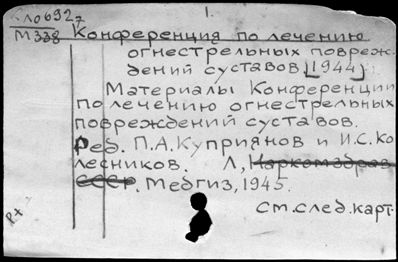 1.
М338 Конференция по лечению
огнестрельных повреж-
дений суставов [1944]
Материалы Конференции
по лечению огнестрельных
повреждений суставов.
Ред. П.А.Куприянов и И.С.Ко
лесников. Л, Наркомздрав
СССР. Медгиз, 1945.
См.след.карт.